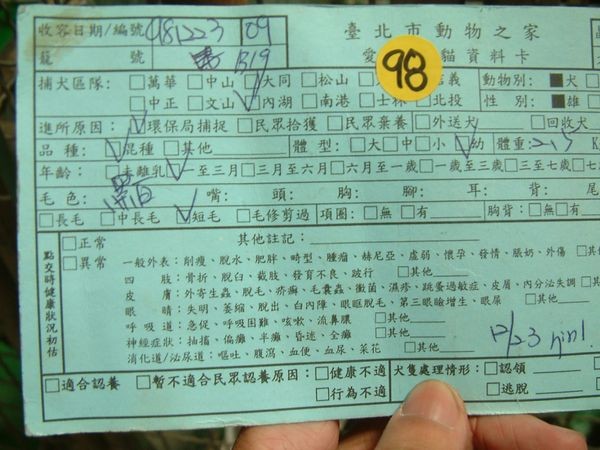 收容日期/編號 981223 09 臺北市動物之家
籠號 B19 愛 貓資料卡
98
捕犬區隊：□萬華□中山□大同□松山 義 動物別：■犬
□中正□文山□內湖□南港□士林□北投 性別：■雄
進所原因：□環保局捕捉□民眾拾獲□民眾棄養□外送犬□回收犬
品種：□混種□其他 體型：□大□中□小□幼 體重：2.5 K
年齡：□未離乳□一至三月□三月六月□六月至一歲□一歲至三歲□三至七歲□七
毛色： 嘴： 頭： 胸： 腳： 耳： 背： 尾
□長毛□中長毛□短毛□毛修剪過 項圈：□無□有 胸背：□無□有
點交時健康狀況初估
□正常 其他註記：
□異常 一般外表：削瘦、脫水、肥胖、畸型、腫瘤、赫尼亞、虛弱、懷孕、發情、脹奶、外傷□其
四肢：骨折、脫臼、截肢、發育不良、跛行 □其他
皮膚：外寄生蟲、脫毛、疥癬、毛囊蟲、黴菌、濕疹、跳蚤過敏症、皮屑、內分泌失調□其
眼睛：失明、萎縮、脫出、白內障、眼眶脫毛、第三眼瞼增生、眼屎 □其他
呼吸道：急促、呼吸困難、咳嗽、流鼻膿 □其他
神經症狀：抽搐、偏癱、半癱、昏迷、全癱 □其他
消化道/泌尿道：嘔吐、腹瀉、血便、血尿、菜花 □其他
12/23
□適合認養 □暫不適合民眾認養原因：□健康不適 犬隻處理情形：□認領
□行為不適 □逃脫